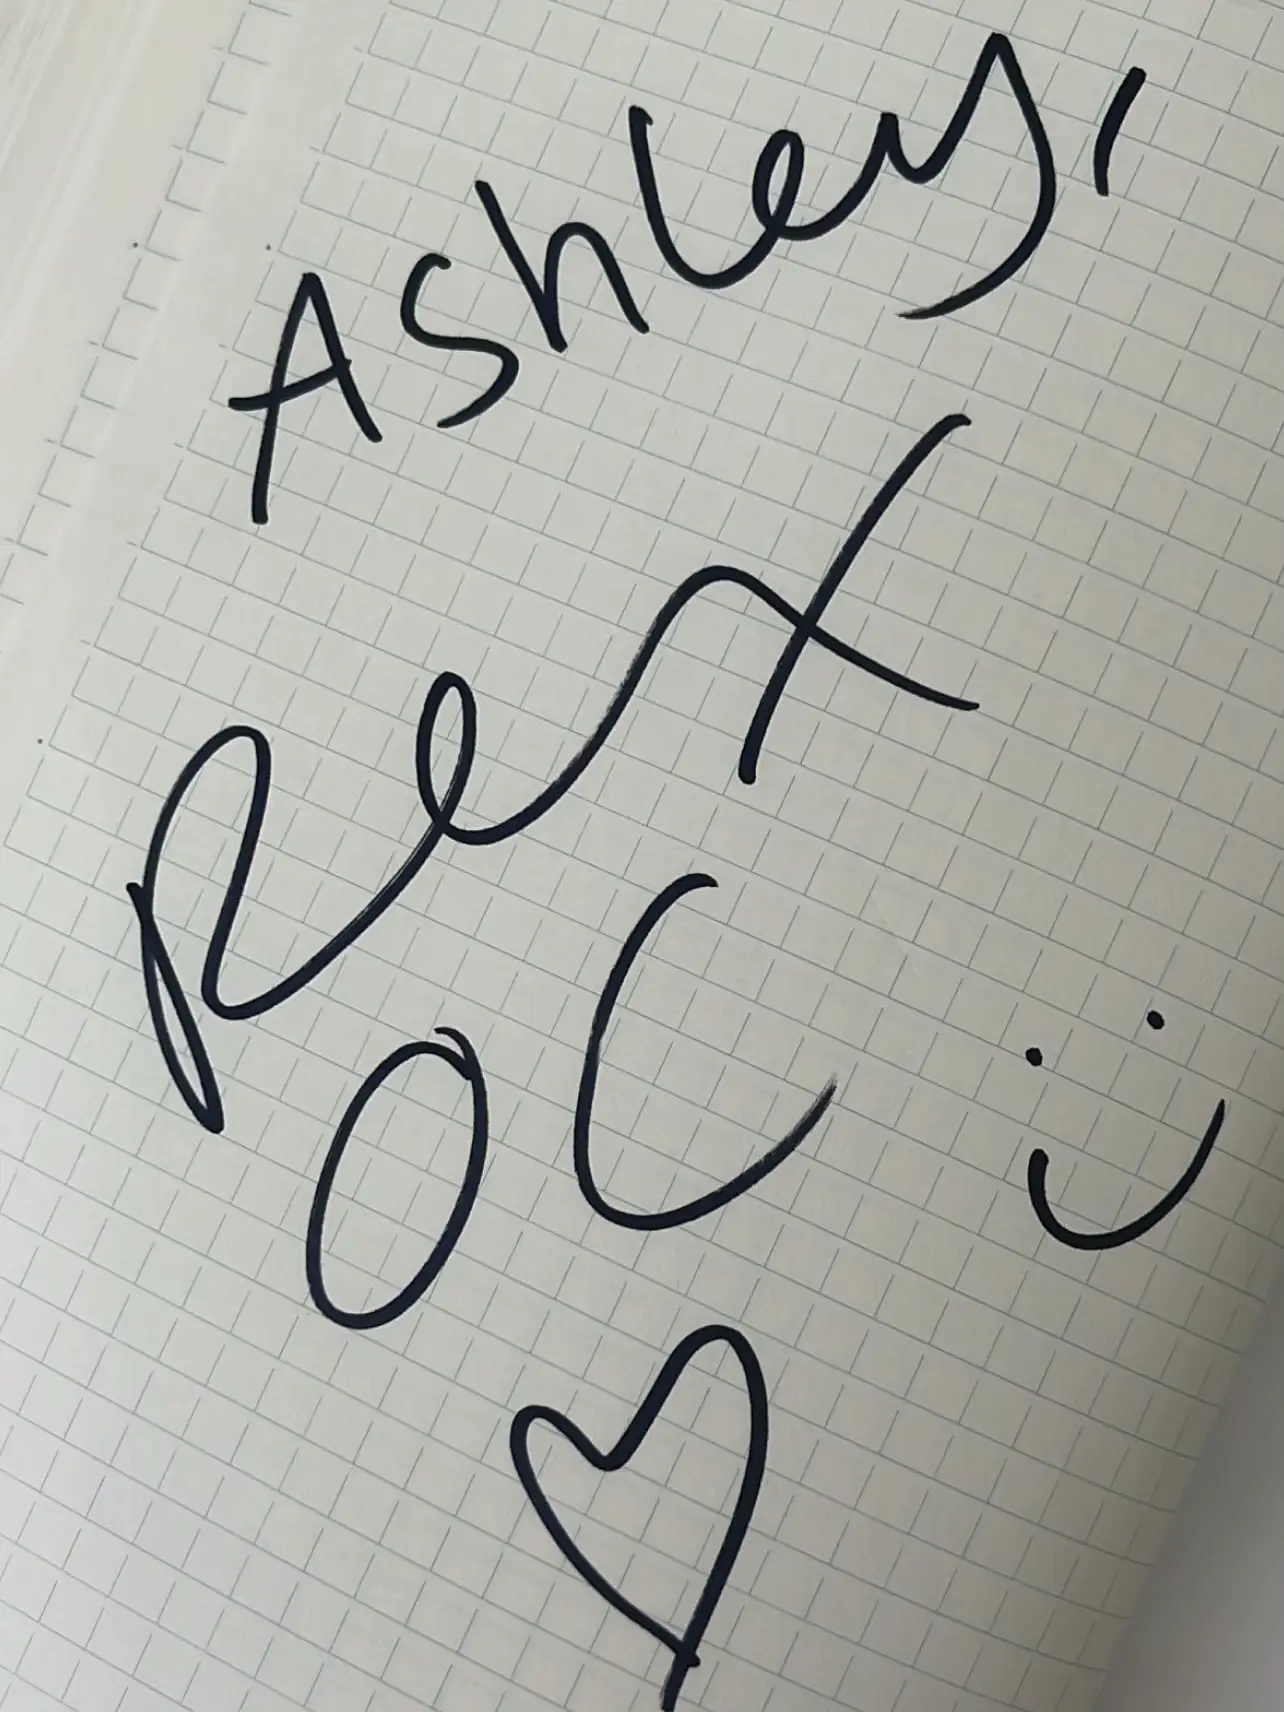 Ashley,
Rex
OC